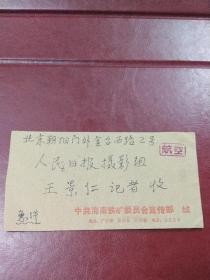 北京朝阳门外金台西路2号
航空
人民日报摄影组
王景仁记者收
中共海南铁矿委员会宣传部 缄